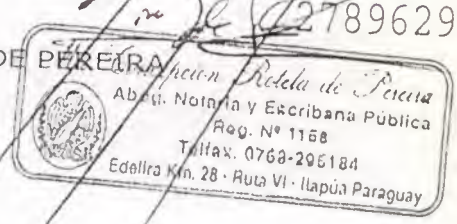 2789629
DE PEREIRA
Rolela de Pereira
Abog. Notaria y Escribana Pública
Reg. Nº 1168
Telfax. 0763-295184
Edelira Km. 28 - Ruta VI - Itapúa Paraguay